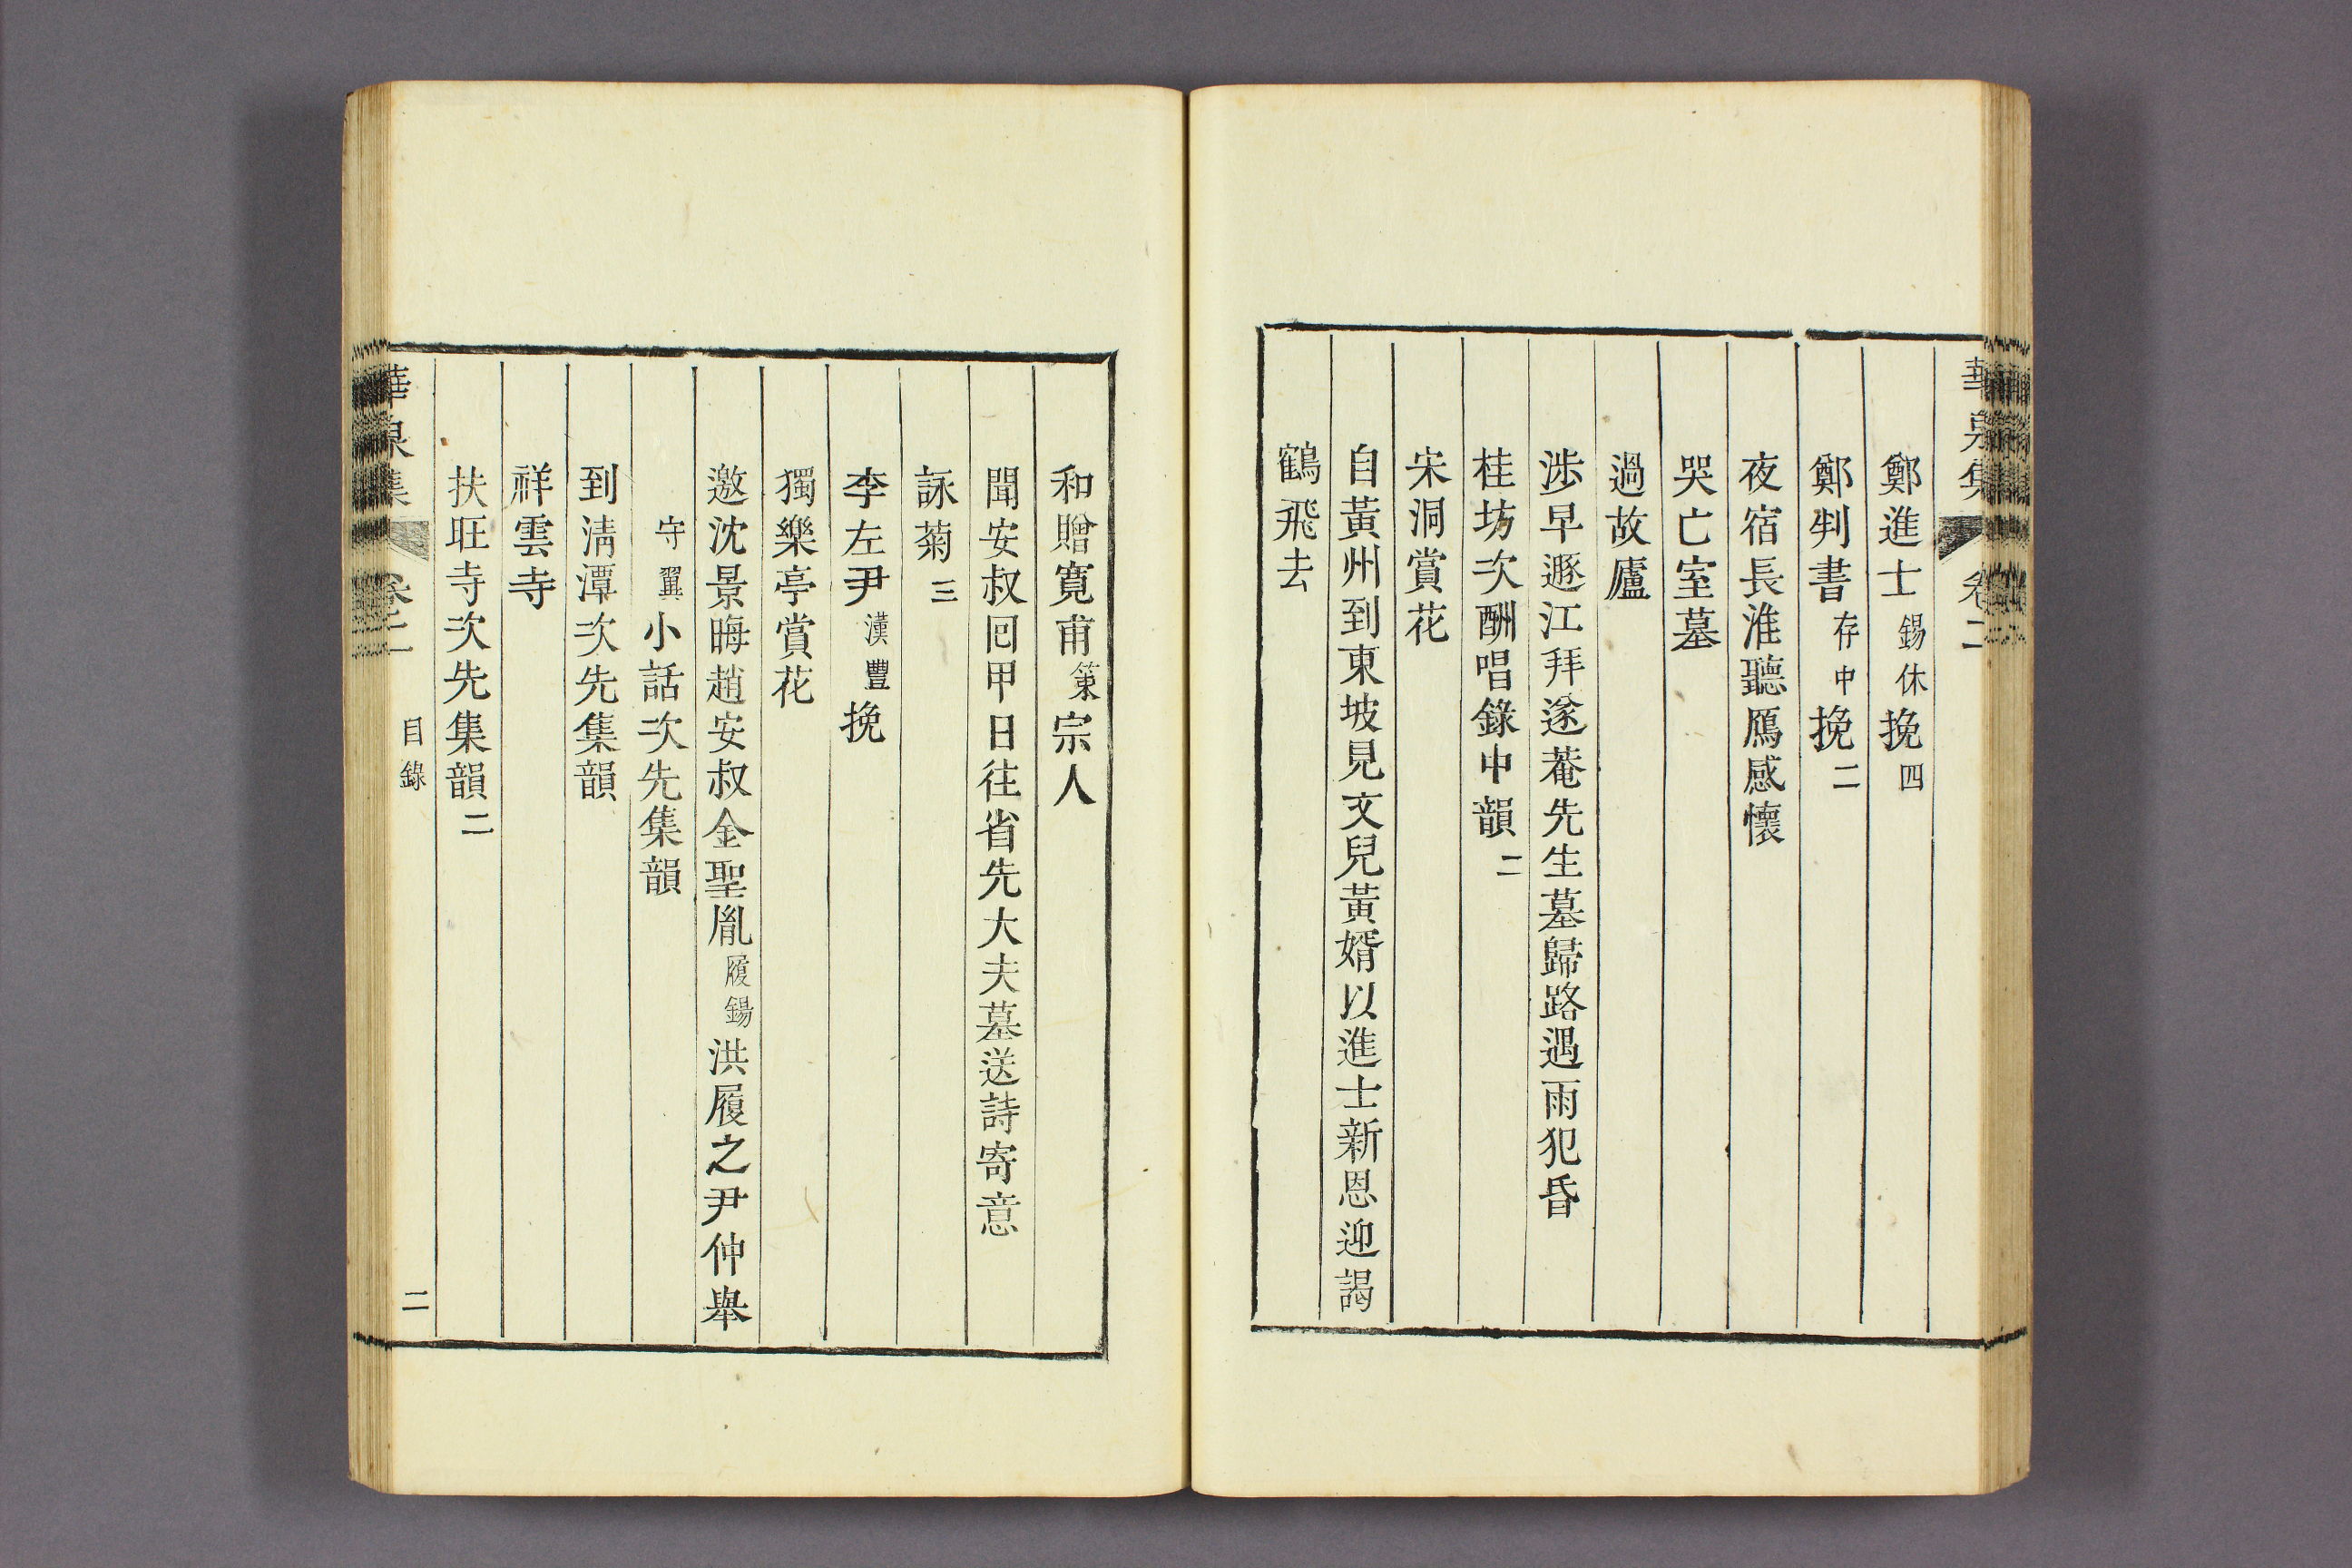 鄭進士錫休挽四
鄭判書存中挽二
夜宿長淮聽鴈感懷
哭亡室墓
過故廬
涉早遯江拜遂菴先生墓歸路遇雨犯昏
桂坊次酬唱錄中韻二
宋洞賞花
自黃州到東坡見文兒黃婿以進士新恩迎謁
鶴飛去
和贈寬甫策宗人
聞安叔回甲日往省先大夫墓送詩寄意
詠菊三
李左尹漢豐挽
獨樂亭賞花
邀沈景晦趙安叔金聖胤履鍚洪履之尹仲擧
守翼小話次先集韻
到淸潭次先集韻
祥雲寺
扶旺寺次先集韻二
華泉集 卷二 目錄 二